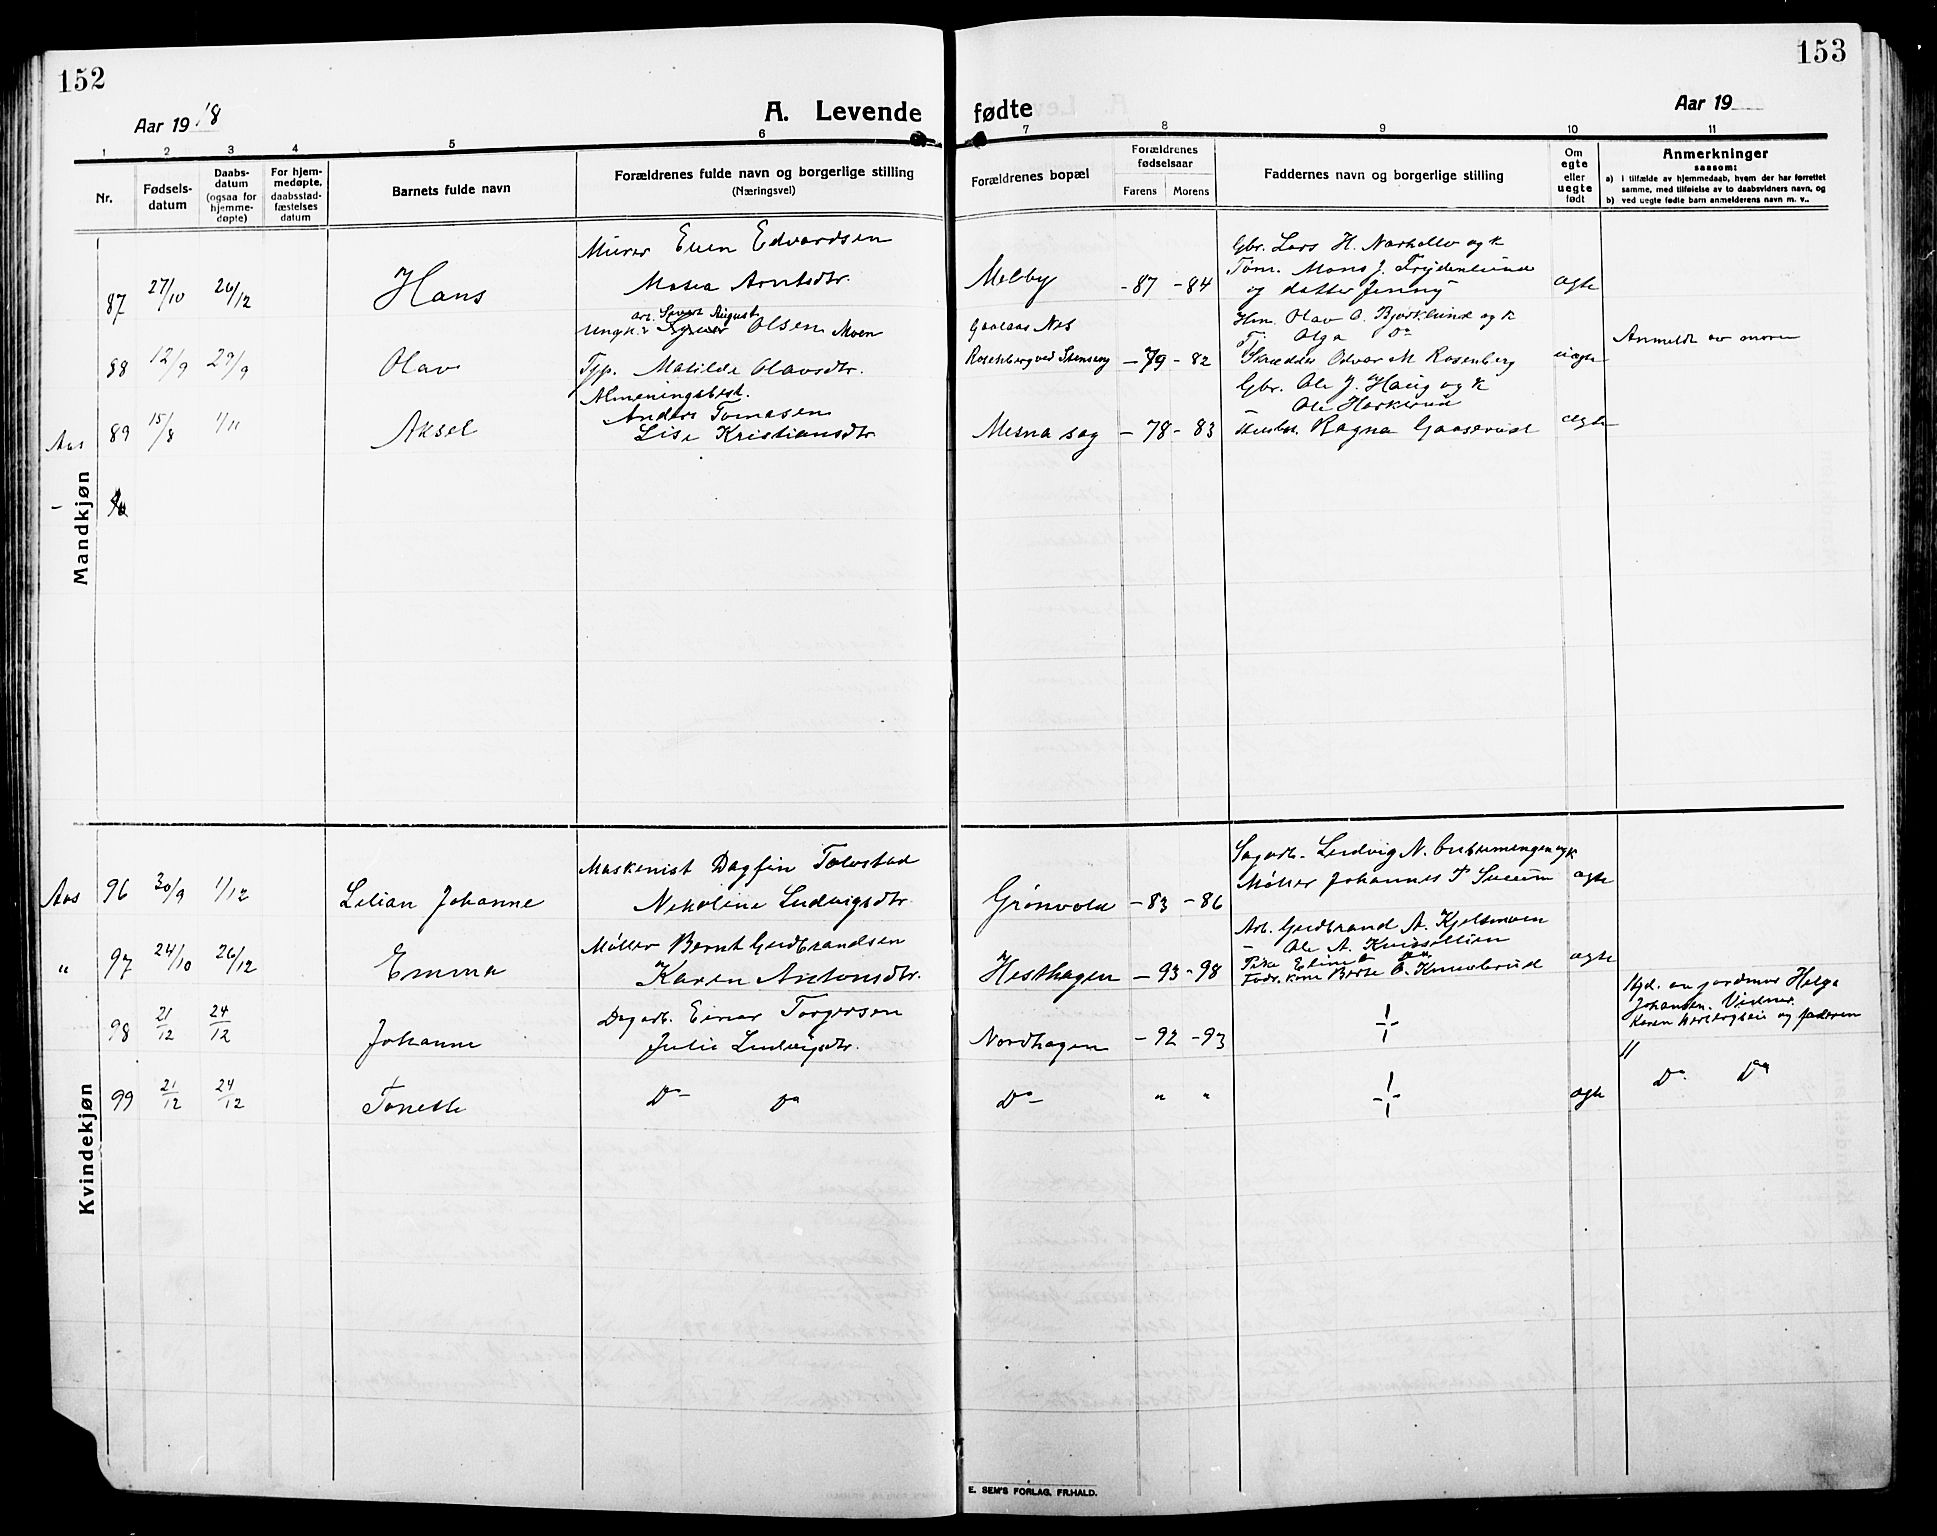 152
Aar 19 18
A. Levende
1 2 3 4 5 6
Nr.
Fødsels-
datum
Daabs-
datum
(ogsaa for
hjemme-
døpte)
For hjem-
medøpte,
daabsstad-
fæstelses
datum
Barnets fulde navn
Forældrenes fulde navn og borgerlige stilling
(Næringsvei)
Mandkjøn
Murer Even Edvardsen
87 27/10 26/12 Hans
Arntsdtr.
arb. August
Ungk. Olsen Moen
88 12/9 29/9 Olav
Typ. Matilde Olavsdtr.
Almeningsbest.
Anders Tomasen
Aas 89 15/8 1/11 Aksel
Lise Kristiansdtr.
Kvindekjøn
Maskenist Dagfin
Aas 96 30/9 1/12 Lilian Johanne
Nekoline Ludvigsdtr.
Møller Bernt Gudbrandsen
" 97 24/10 26/12 Emma
Karen Antonsdtr.
Dagarb. Einar Torgersen
98 21/12 24/12 Johanne
Julie Ludvigsdtr.
99 21/12 24/12 Tonette Do Do
153
fødte
Aar 19
7 8 9 10 11
Forældrenes bopæl
Forældrenes
fødselsaar
Førens Morens
Faddernes navn og borgerlige stilling
Om
egte
eller
uegte
født
Anmerkninger
saasom:
a) i tilfælde av hjemmedaab, hvem der har forrettet
samme, med tilføielse av to daabsvidners navn, og
b) ved uegte fødte barn anmelderens navn m. v..
Gbr. Lars H. og k
Melby -87 -84
Tøm. Mons J. Frydenlund
og datter Jenny
ægte
Gaalaas Nes
Hm. Olav O. Bjørklund og k
Olga Do
Rosenberg ved Stenseng -79 -82
Skrædder M. Rosenberg
uægte
Anmeldt av moren
Gbr. Ole J. Haug og k
Ole
Mesna sag -78 -83
Ragna Gaaserud
ægte
Sagarb. Ludvig N. og k
Grønvold -83 -86
Møller Johannes
ægte
Arb. Gudbrand A. Kjelsmoen
- Ole A.
Hesthagen -93 -98
Pike Eline Do
ægte
Hjd. av jordmor Helga
Johansen. Vidner
Karen og faderen
Nordhagen -92 -93
Do " "
ægte
Do Do
E. SEM'S FORLAG, FR.HALD.